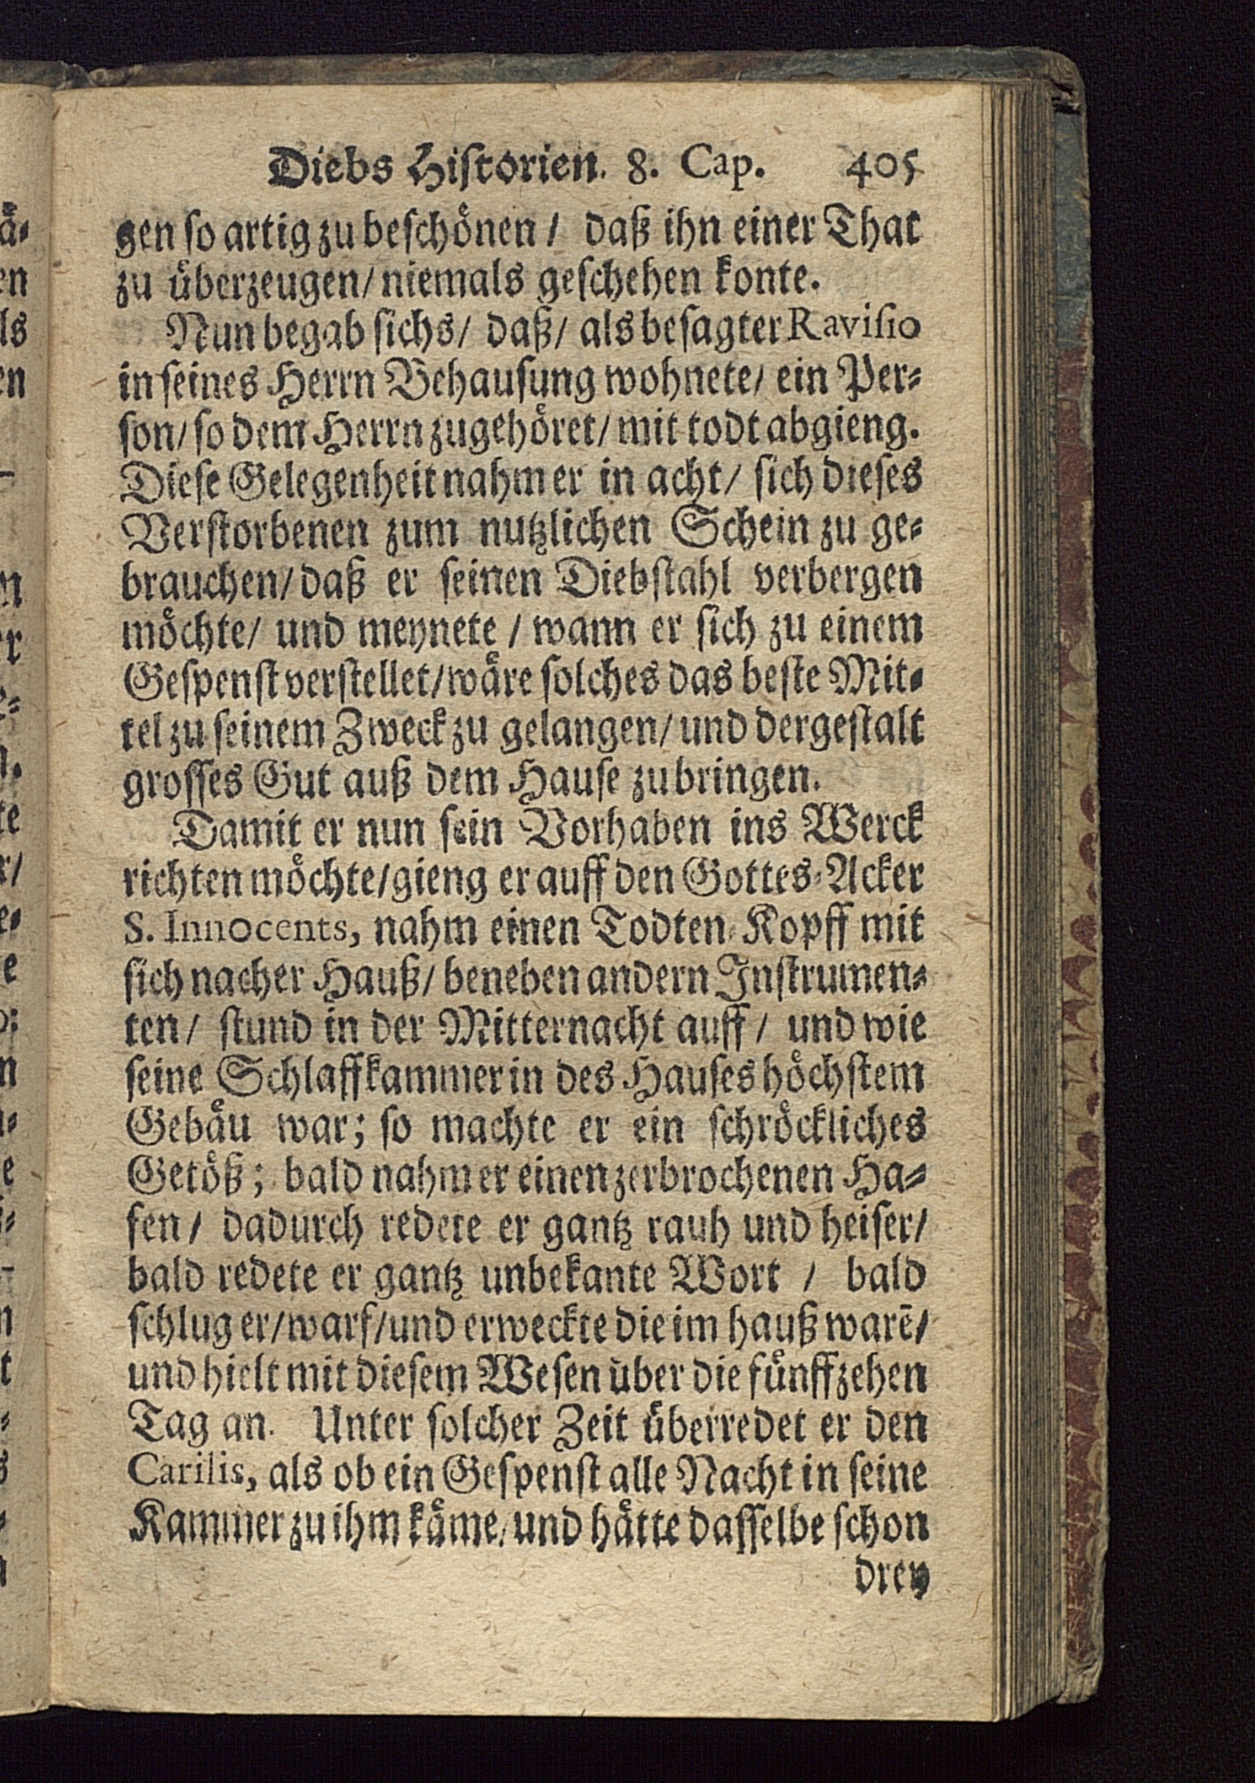 Diebs Historien. 8. Cap. 405
gen so artig zu beschönen / daß ihn einer That
zu überzeugen / niemals geschehen konte.
Nun begab sichs / daß / als besagter Ravisio
in seines Herrn Behausung wohnete / ein Per-
son / so dem Herrn zugehöret / mit todt abgieng.
Diese Gelegenheit nahm er in acht / sich dieses
Verstorbenen zum nutzlichen Schein zu ge-
brauchen / daß er seinen Diebstahl verbergen
möchte / und meynete / wann er sich zu einem
Gespenst verstellet / wäre solches das beste Mit-
tel zu seinem Zweck zu gelangen / und dergestalt
grosses Gut auß dem Hause zubringen.
Damit er nun sein Vorhaben ins Werck
richten möchte / gieng er auff den Gottes-Acker
S. Innocents, nahm einen Todten-Kopff mit
sich nacher Hauß / beneben andern Instrumen-
ten / stund in der Mitternacht auff / und wie
seine Schlaffkammer in des Hauses höchstem
Gebäu war; so machte er ein schröckliches
Getöß; bald nahm er einen zerbrochenen Ha-
fen / dadurch redete er gantz rauh und heiser /
bald redete er gantz unbekante Wort / bald
schlug er / warf / und erweckte die im hauß warē /
und hielt mit diesem Wesen über die fünffzehen
Tag an. Unter solcher Zeit überredet er den
Carilis, als ob ein Gespenst alle Nacht in seine
Kammer zu ihm käme / und hätte dasselbe schon
drey